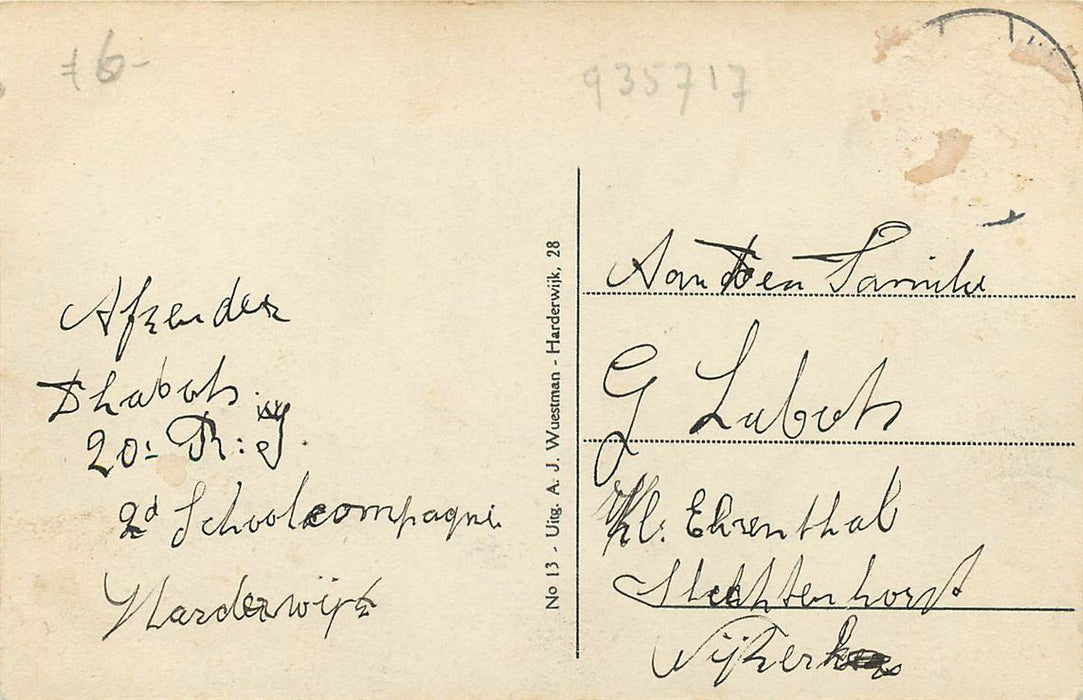 ≠6-
935717
Afzender
D Labots.
20e R: J.
2d Schoolcompagnie
Harderwijk
No 13 - Uitg. A. J. Wuestman - Harderwijk, 28
Aan den Familie
G Labots
Kl: Ehrenthal
Slechtenhorst
Nijkerk